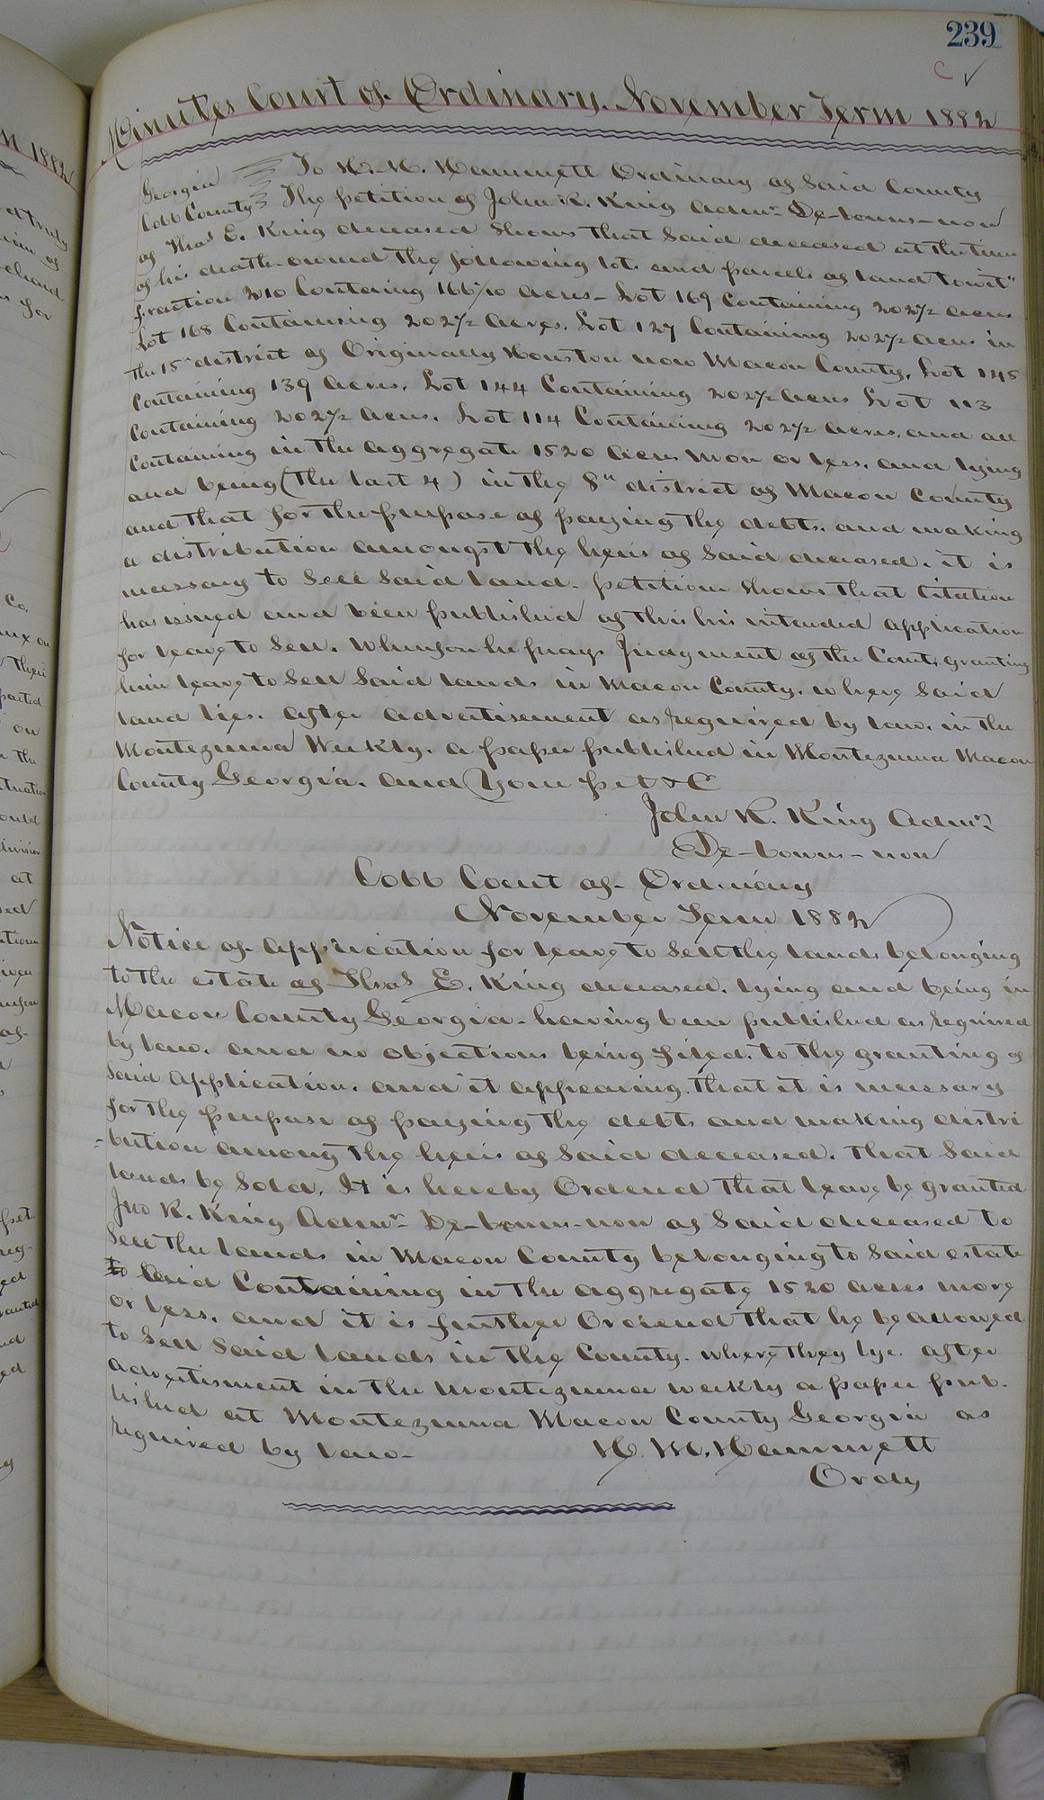 239
Minutes Court of Ordinary. November Term 1882
Georgia } To H. M. Hammett Ordinary of Said County
Cobb County } The petition of John R. King Admr. De-bonis-non
of Thos E. King deceased Shows that Said deceased at the time
of his death owned the following lots and parcels of land towit"
fraction 210 Containg 166 2/10 acres - Lot 169 Containing 202½ acres
Lot 168 Containing 202½ Acres. Lot 127 Containing 202½ acres in
the 15" district of Originally Houston now Macon County. Lot 145
Containing 139 acres. Lot 144 Containing 202½ acres Lot 113
Containing 202½ acres. Lot 114 Containing 202½ acres. and all
Containing in the aggregate 1520 acres more or less. and lying
and being (the last 4) in the 8th district of Macon County
and that for the purpose of paying the debts. and making
a distribution amongst the heirs of Said deceased. it is
necessary to Sell Said land. petition Shows that Citation
has issued and been published of this his intended application
for leave to Sell. Wherefore he prays Judgment of the Court, granting
him leave to Sell Said lands in Macon County. where Said
land lies. after advertisement as required by law. in the
Montezuma Weekly. a paper published in Montezuma Macon
County Georgia. and Your pet &C
John R. King Admr.
De-bonis-non
Cobb Court of Ordinary
November Term 1882
Notice of Application for leave to Sell the lands belonging
to the estate of Thos E. King deceased. lying and being in
Macon County Georgia - having been published as required
by law. and no objections being filed. to the granting of
Said Application. and it appearing. that it is necessary
for the purpose of paying the debts and making distri
-bution among the heirs of Said deceased. that Said
lands be Sold. It is hereby Ordered that leave be granted
Jno R. King Admr De-bonis-non of Said deceased to
Sell the lands in Macon County belonging to Said estate
to Said Containing in the aggregate 1520 acres more
or less. and it is further Ordered that he be allowed
to Sell Said lands in the County. where they lye. after
advertisment in the Montezuma weekly a paper pub.
lished at Montezuma Macon County Georgia as
required by law - H. M. Hammett
Ordy